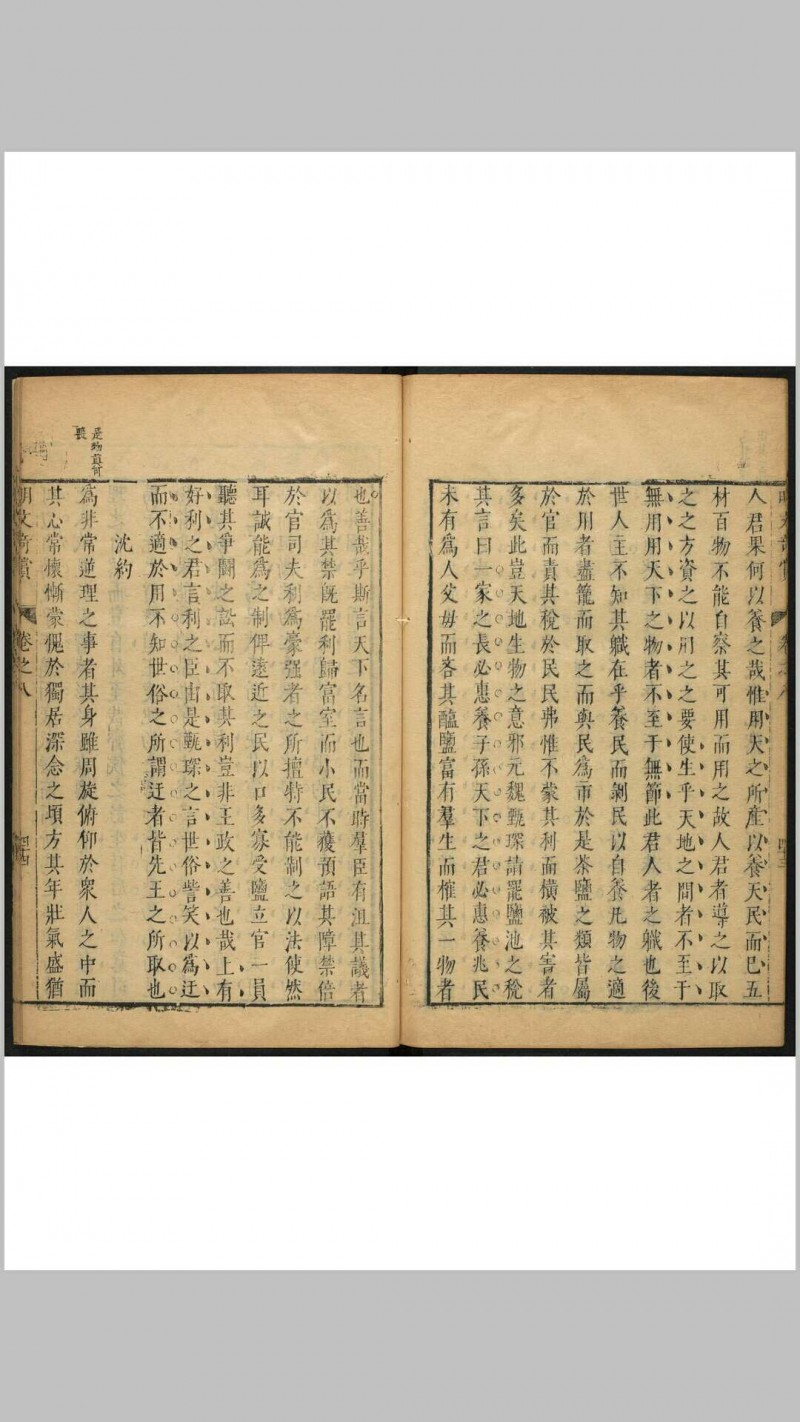 人君果何以養之哉惟用天之所產以養天民而已五
材百物不能自察其可用而用之故人君者導之以取
之之方資之以用之之要使生乎天地之間者不至于
無用用天下之物者不至于無節此君人者之職也後
世人主不知其職在乎養民而剝民以自養凡物之適
於用者盡籠而取之而與民為市於是茶鹽之類皆屬
於官而責其稅於民民弗惟不蒙其利而橫被其害者
多矣此豈天地生物之意邪元魏甄琛請罷鹽池之稅
其言曰一家之長必惠養子孫天下之君必惠養兆民
未有為人父毋而吝其醯鹽富有羣生而榷其一物者
卷之八
四十三
也善哉乎斯言天下名言也而當時羣臣有沮其議者
以為其禁旣罷利歸富室而小民不獲預語其障禁倍
於官司夫利為豪强者之所擅特不能制之以法使然
耳誠能為之制俾遠近之民以口多寡受鹽立官一員
聽其爭鬭之訟而不取其利豈非王政之善也哉上有
好利之君言利之臣由是甄琛之言世俗訾笑以為迂
而不適於用不知世俗之所謂迂者皆先王之所取也
沈約
是約眞可
為非常逆理之事者其身雖周旋俯仰於衆人之中而
其心常懷慚蒙愧於獨居深念之頃方其年壯氣盛猶
明文奇賞
卷之八
四十四